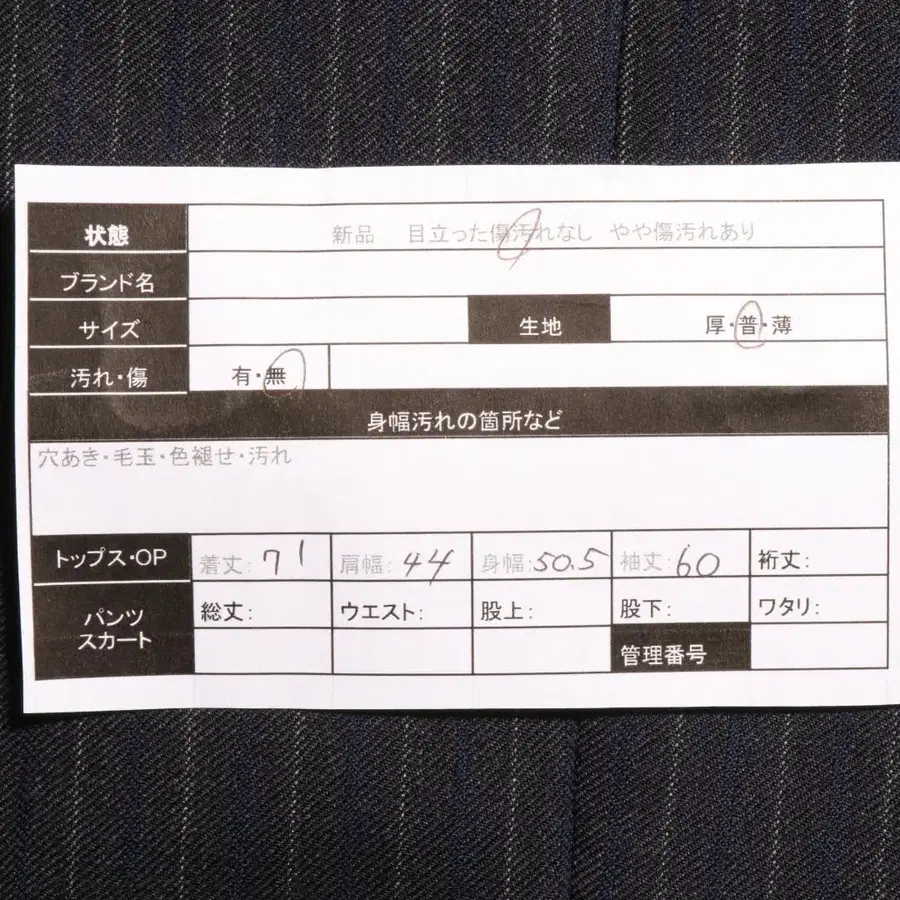 状態 新品 目立った傷汚れなし やや傷汚れあり
ブランド名
サイズ 生地 厚・普・薄
汚れ・傷 有・無
身幅汚れの箇所など
穴あき・毛玉・色褪せ・汚れ
トップス・OP 着丈: 71 肩幅: 44 身幅: 50.5 袖丈: 60 裄丈:
パンツ 総丈: ウエスト: 股上: 股下: ワタリ:
スカート 管理番号